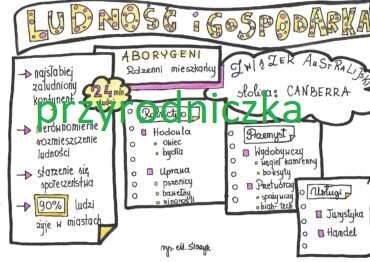 LUDNOŚĆ i GOSPODARKA
najsłabiej
zaludniony
kontynent
nierównomierne
rozmieszczenie
ludności
starzenie się
społeczeństwa
90% ludzi
żyje w miastach
24 mln
ABORYGENI
Rdzenni mieszkańcy
ZWIĄZEK AUSTRALIJSKI
stolica: CANBERRA
przyrodniczka
Rolnictwo
Hodowla
owiec
bydła
Uprawa
pszenicy
bawełny
winorośli
Przemysł
Wydobywczy
węgiel kamienny
boksyty
Przetwórczy
spożywczy
high-tech
Usługi
Turystyka
Handel